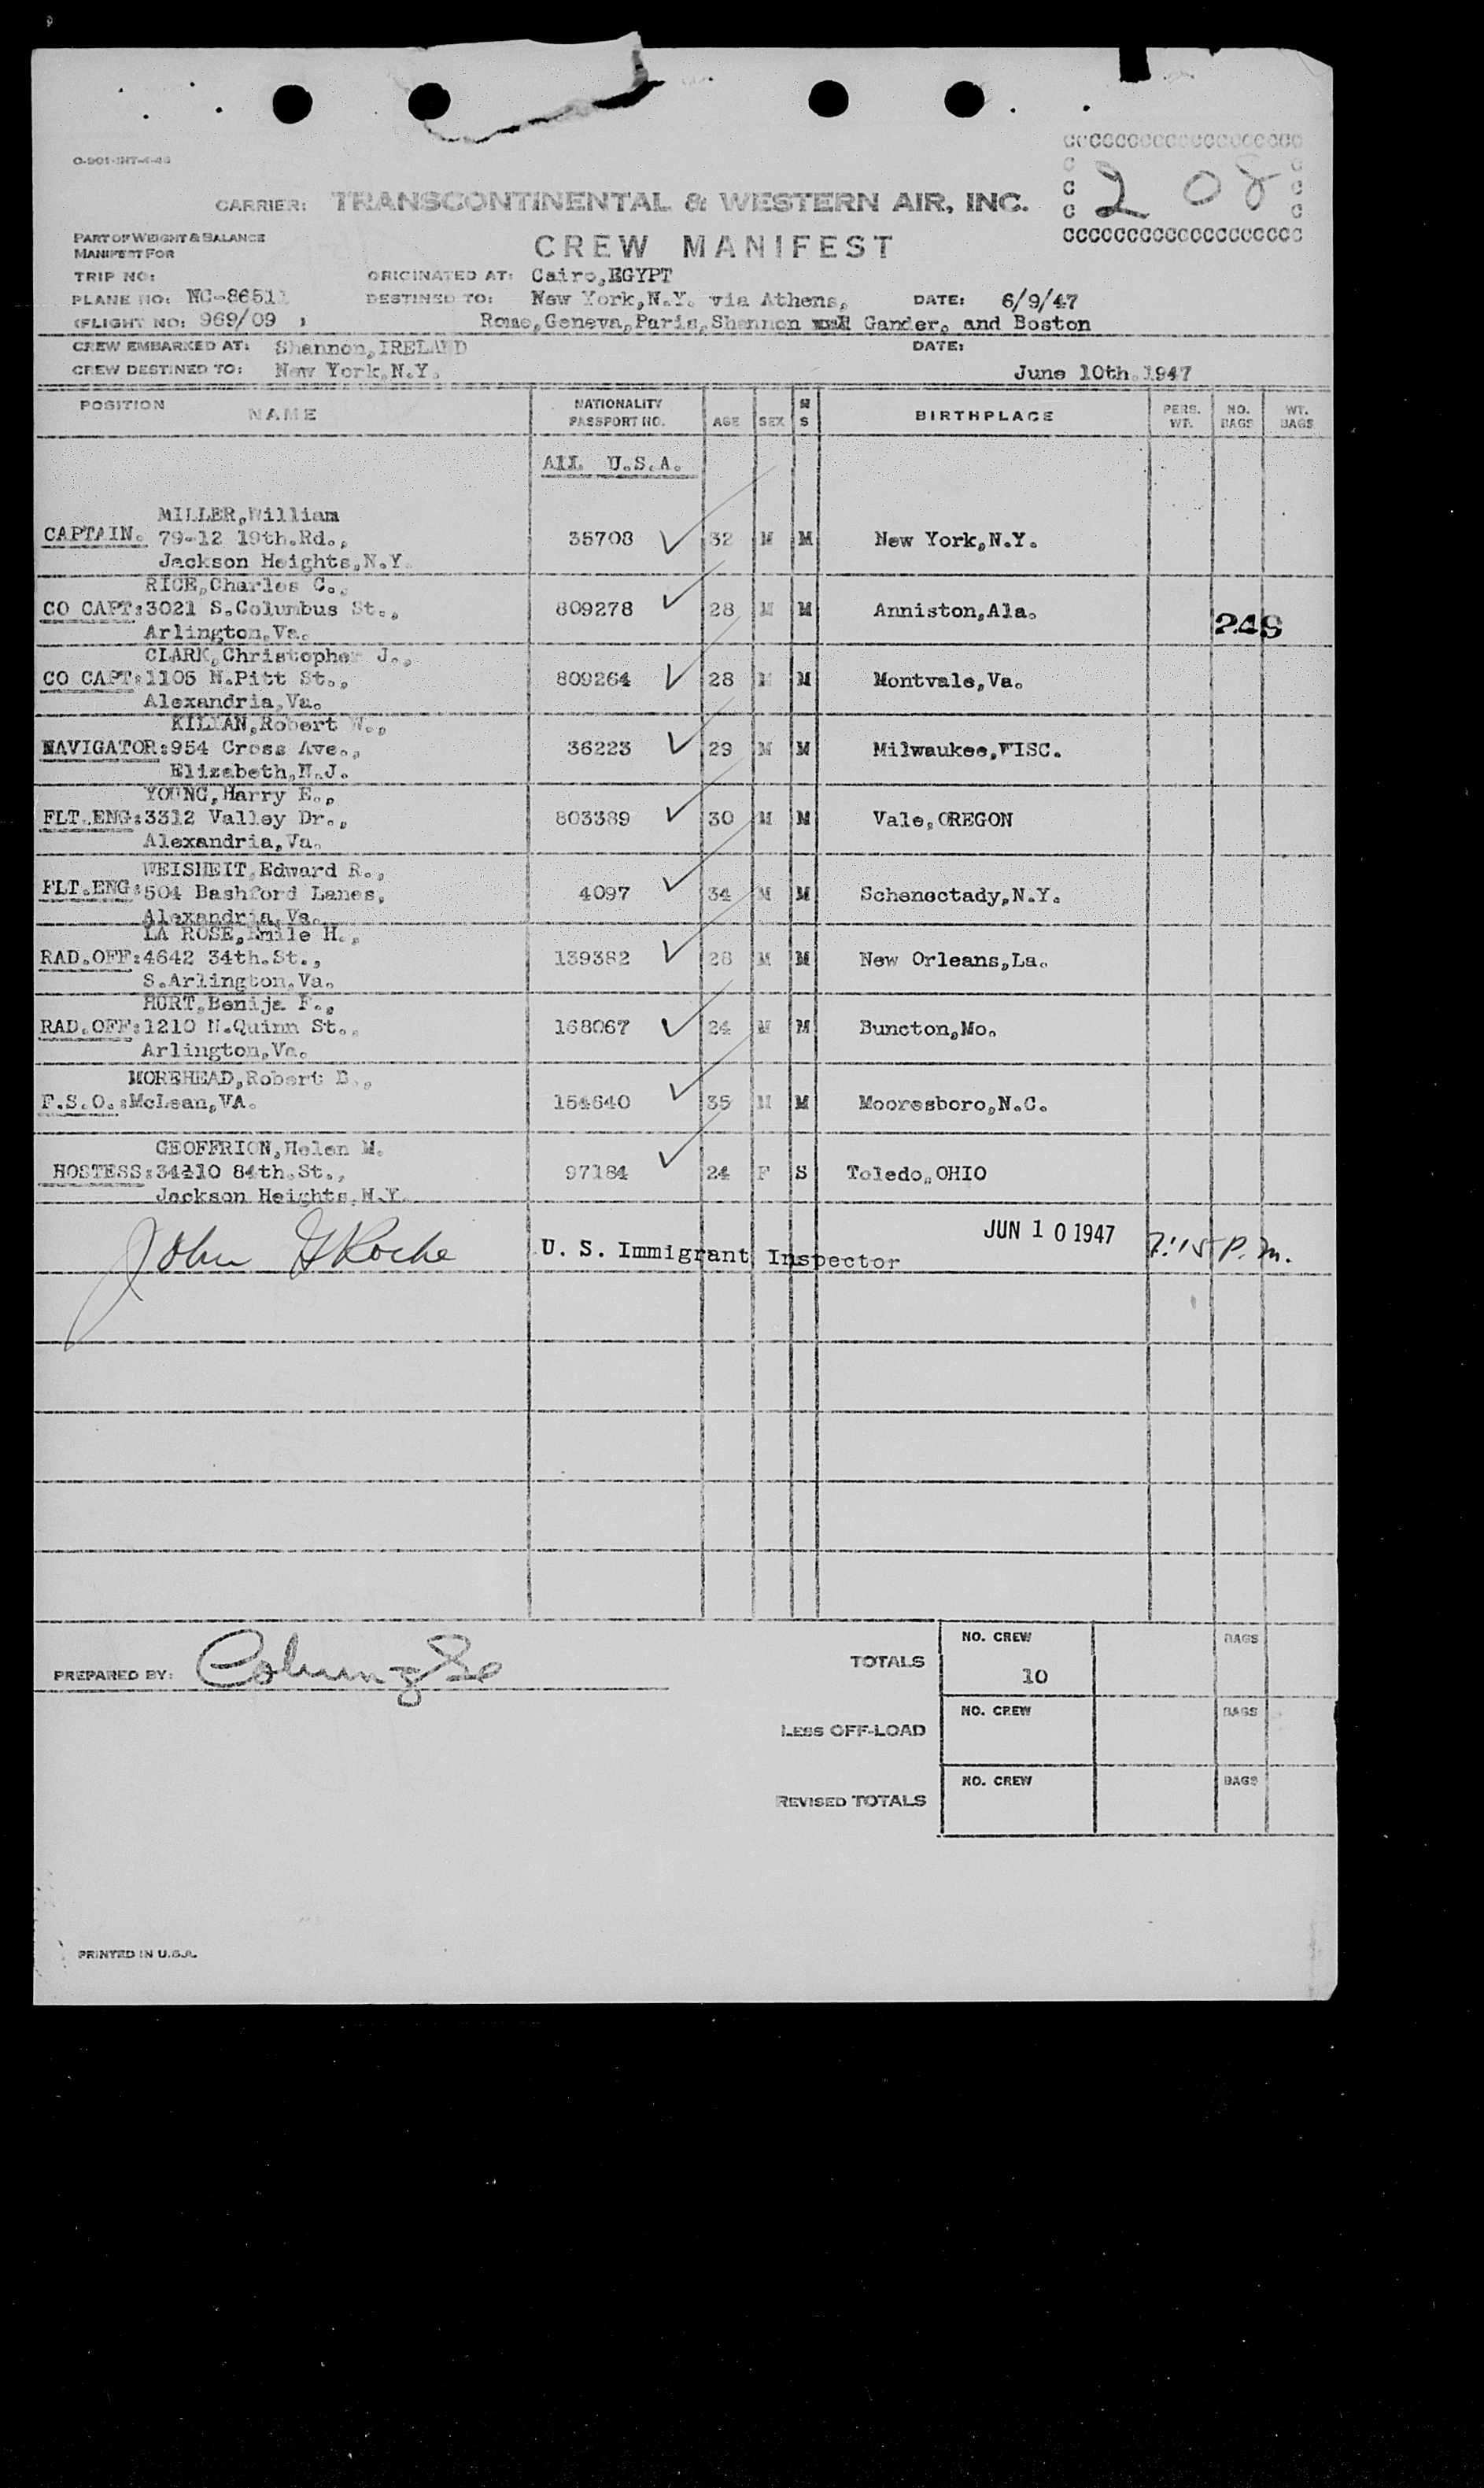 O-901-INT-4-46
2 08
CARRIER: TRANSCONTINENTAL & WESTERN AIR, INC.
PART OF WEIGHT & BALANCE
MANIFEST FOR
CREW MANIFEST
TRIP NO: ORIGINATED AT: Cairo,EGYPT
PLANE NO: NC-86511 DESTINED TO: New York,N.Y. via Athens, DATE: 6/9/47
(FLIGHT NO: 969/09 ) Rome,Geneva,Paris,Shannon Gander, and Boston
CREW EMBARKED AT: Shannon,IRELAND DATE:
CREW DESTINED TO: New York,N.Y. June 10th.1947
POSITION NAME NATIONALITY PASSPORT NO. AGE SEX M S BIRTHPLACE PERS. WT. NO. BAGS WT. BAGS
All U.S.A.
MILLER,William
CAPTAIN. 79-12 19th.Rd., 35708 32 M M New York,N.Y.
Jackson Heights,N.Y.
RICE,Charles C.,
CO CAPT:3021 S.Columbus St., 809278 28 M M Anniston,Ala.
Arlington,Va. 248
CLARK,Christopher J.,
CO CAPT:1105 N.Pitt St., 809264 28 M M Montvale,Va.
Alexandria,Va.
KILIAN,Robert W.,
NAVIGATOR:954 Cross Ave., 36223 29 M M Milwaukee,WISC.
Elizabeth,N.J.
YOUNG,Harry E.,
FLT.ENG:3312 Valley Dr., 803389 30 M M Vale,OREGON
Alexandria,Va.
WEISHEIT,Edward R.,
FLT.ENG:504 Bashford Lanes, 4097 34 M M Schenectady,N.Y.
Alexandria,Va.
LA ROSE,Emile H.,
RAD.OFF:4642 34th.St., 139382 28 M M New Orleans,La.
S.Arlington.Va.
HURT,Benija F.,
RAD.OFF:1210 N.Quinn St., 168067 24 M M Buncton,Mo.
Arlington,Va.
MOREHEAD,Robert D.,
F.S.O.:McLean,VA. 154640 35 M M Mooresboro,N.C.
GEOFFRION,Helen M.
HOSTESS:34-10 84th.St., 97184 24 F S Toledo,OHIO
Jackson Heights,N.Y.
John Roche U. S. Immigrant Inspector JUN 10 1947 7:15 P.m.
PREPARED BY: TOTALS NO. CREW 10 BAGS
LESS OFF-LOAD NO. CREW BAGS
REVISED TOTALS NO. CREW BAGS
PRINTED IN U.S.A.